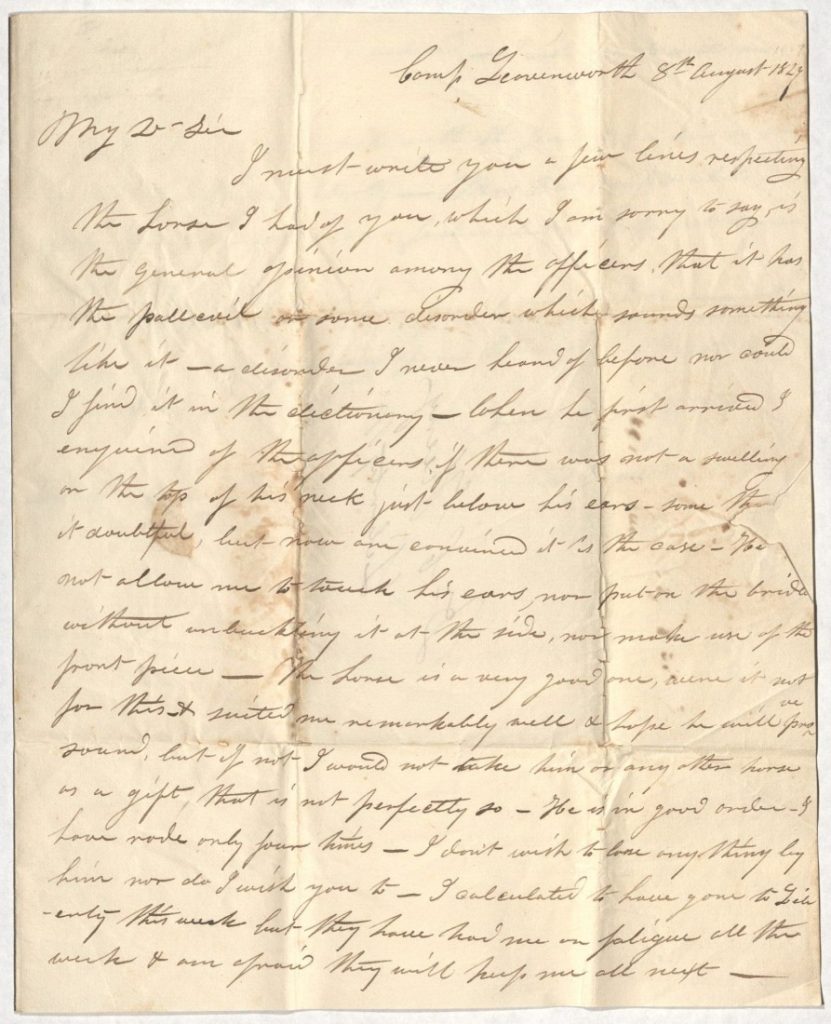 Camp Leavenworth 8th August 1827
My D- Sir
I must write you a few lines respecting
the horse I had of you, which I am sorry to say, is
the general opinion among the officers, that it has
the pall evil or some disorder which sounds something
like it – a disorder I never heard of before nor could
I find it in the dictionary – When he first arrived I
enquired of the officers, if there was not a swelling
on the top of his neck just below his ears – some th
it doubtful, but now are convinced it is the case – He
not allow me to touch his ears, nor put on the bridle
without unbuckling it at the side, nor make use of the
front piece – The horse is a very good one, were it not
for this & suited me remarkably well & hope he will prove
sound, but if not I would not take him or any other horse
as a gift, that is not perfectly so – He is in good order – I
have rode only four times – I don't wish to lose any thing by
him nor do I wish you to – I calculated to have gone to Lib
-erty this week but they have had me on fatigue all the
week & am afraid they will keep me all next –